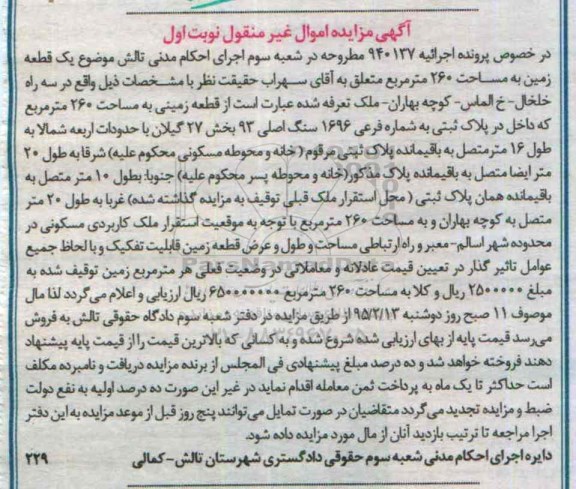 آگهی مزایده اموال غیر منقول نوبت اول
در خصوص پرونده اجرائیه ۹۴۰۱۳۷ مطروحه در شعبه سوم اجرای احکام مدنی تالش موضوع یک قطعه
زمین به مساحت ۲۶۰ مترمربع متعلق به آقای سهراب حقیقت نظر با مشخصات ذیل واقع در سه راه
خلخال- خ الماس- کوچه بهاران- ملک تعرفه شده عبارت است از قطعه زمینی به مساحت ۲۶۰ مترمربع
که داخل در پلاک ثبتی به شماره فرعی ۱۶۹۶ سنگ اصلی ۹۳ بخش ۲۷ گیلان با حدودات اربعه شمالا به
طول ۱۶ مترمتصل به باقیمانده پلاک ثبتی مرقوم (خانه و محوطه مسکونی محکوم علیه) شرقا به طول ۲۰
متر ایضا متصل به باقیمانده پلاک مذکور(خانه و محوطه پسر محکوم علیه) جنوبا: بطول ۱۰ متر متصل به
باقیمانده همان پلاک ثبتی ( محل استقرار ملک قبلی توقیف به مزایده گذاشته شده) غربا به طول ۲۰ متر
متصل به کوچه بهاران و به مساحت ۲۶۰ مترمربع با توجه به موقعیت استقرار ملک کاربردی مسکونی در
محدوده شهر اسالم- معبر و راه ارتباطی مساحت و طول و عرض قطعه زمین قابلیت تفکیک و با لحاظ جمیع
عوامل تاثیر گذار در تعیین قیمت عادلانه و معاملاتی در وضعیت فعلی هر مترمربع زمین توقیف شده به
مبلغ ۲۵۰۰۰۰۰ ریال و کلا به مساحت ۲۶۰ مترمربع ۶۵۰۰۰۰۰۰۰ ریال ارزیابی و اعلام می‌گردد لذا مال
موصوف ۱۱ صبح روز دوشنبه ۹۵/۲/۱۳ از طریق مزایده در دفتر شعبه سوم دادگاه حقوقی تالش به فروش
می‌رسد قیمت پایه از بهای ارزیابی شده شروع شده و به کسانی که بالاترین قیمت را از قیمت پایه پیشنهاد
دهند فروخته خواهد شد و ده درصد مبلغ پیشنهادی فی المجلس از برنده مزایده دریافت و نامبرده مکلف
است حداکثر تا یک ماه به پرداخت ثمن معامله اقدام نماید در غیر این صورت ده درصد اولیه به نفع دولت
ضبط و مزایده تجدید می‌گردد متقاضیان در صورت تمایل می‌توانند پنج روز قبل از موعد مزایده به این دفتر
اجرا مراجعه تا ترتیب بازدید آنان از مال مورد مزایده داده شود.
دایره اجرای احکام مدنی شعبه سوم حقوقی دادگستری شهرستان تالش- کمالی ۲۲۹